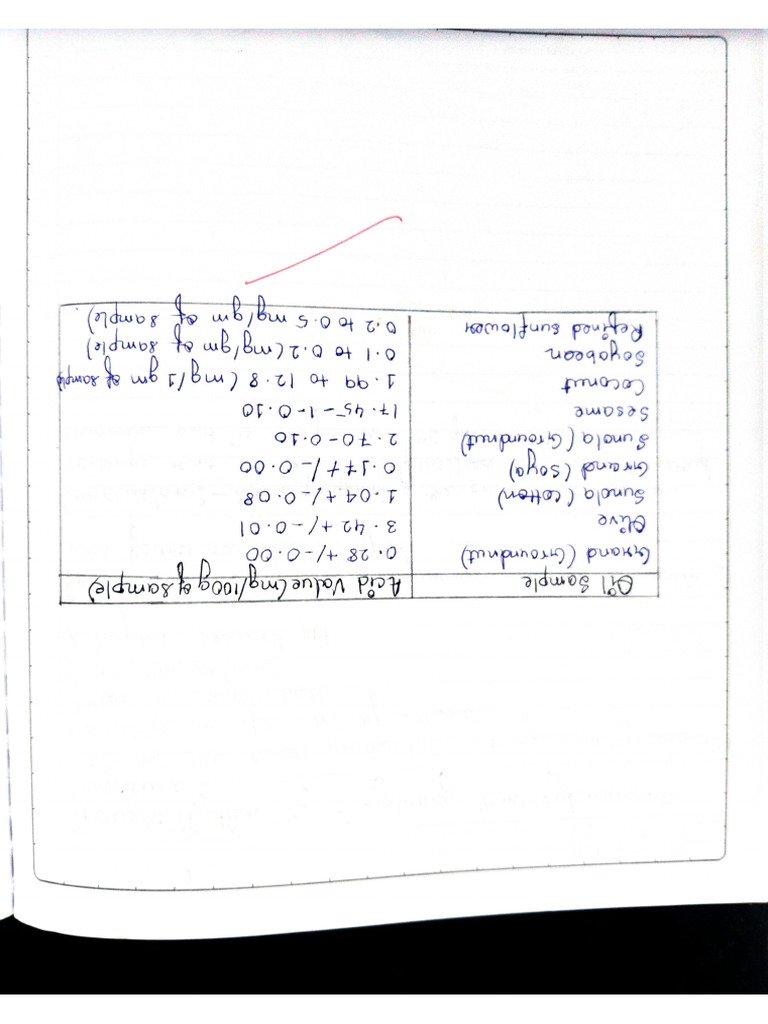 Oil Sample Acid Value (mg/100g of sample)
Grand (Groundnut) 0.28 +/-0.00
Olive 3.42 +/-0.01
Sunola (cotton) 1.04 +/-0.08
Grand (Soya) 0.17 +/-0.00
Sunola (Groundnut) 2.70-0.10
Sesame 17.45-1-0.10
Coconut 1.99 to 12.8 (mg/1 gm of sample
Soyobean 0.1 to 0.2 (mg/gm of sample)
Refined sunflower 0.2 to 0.5 mg/gm of sample)